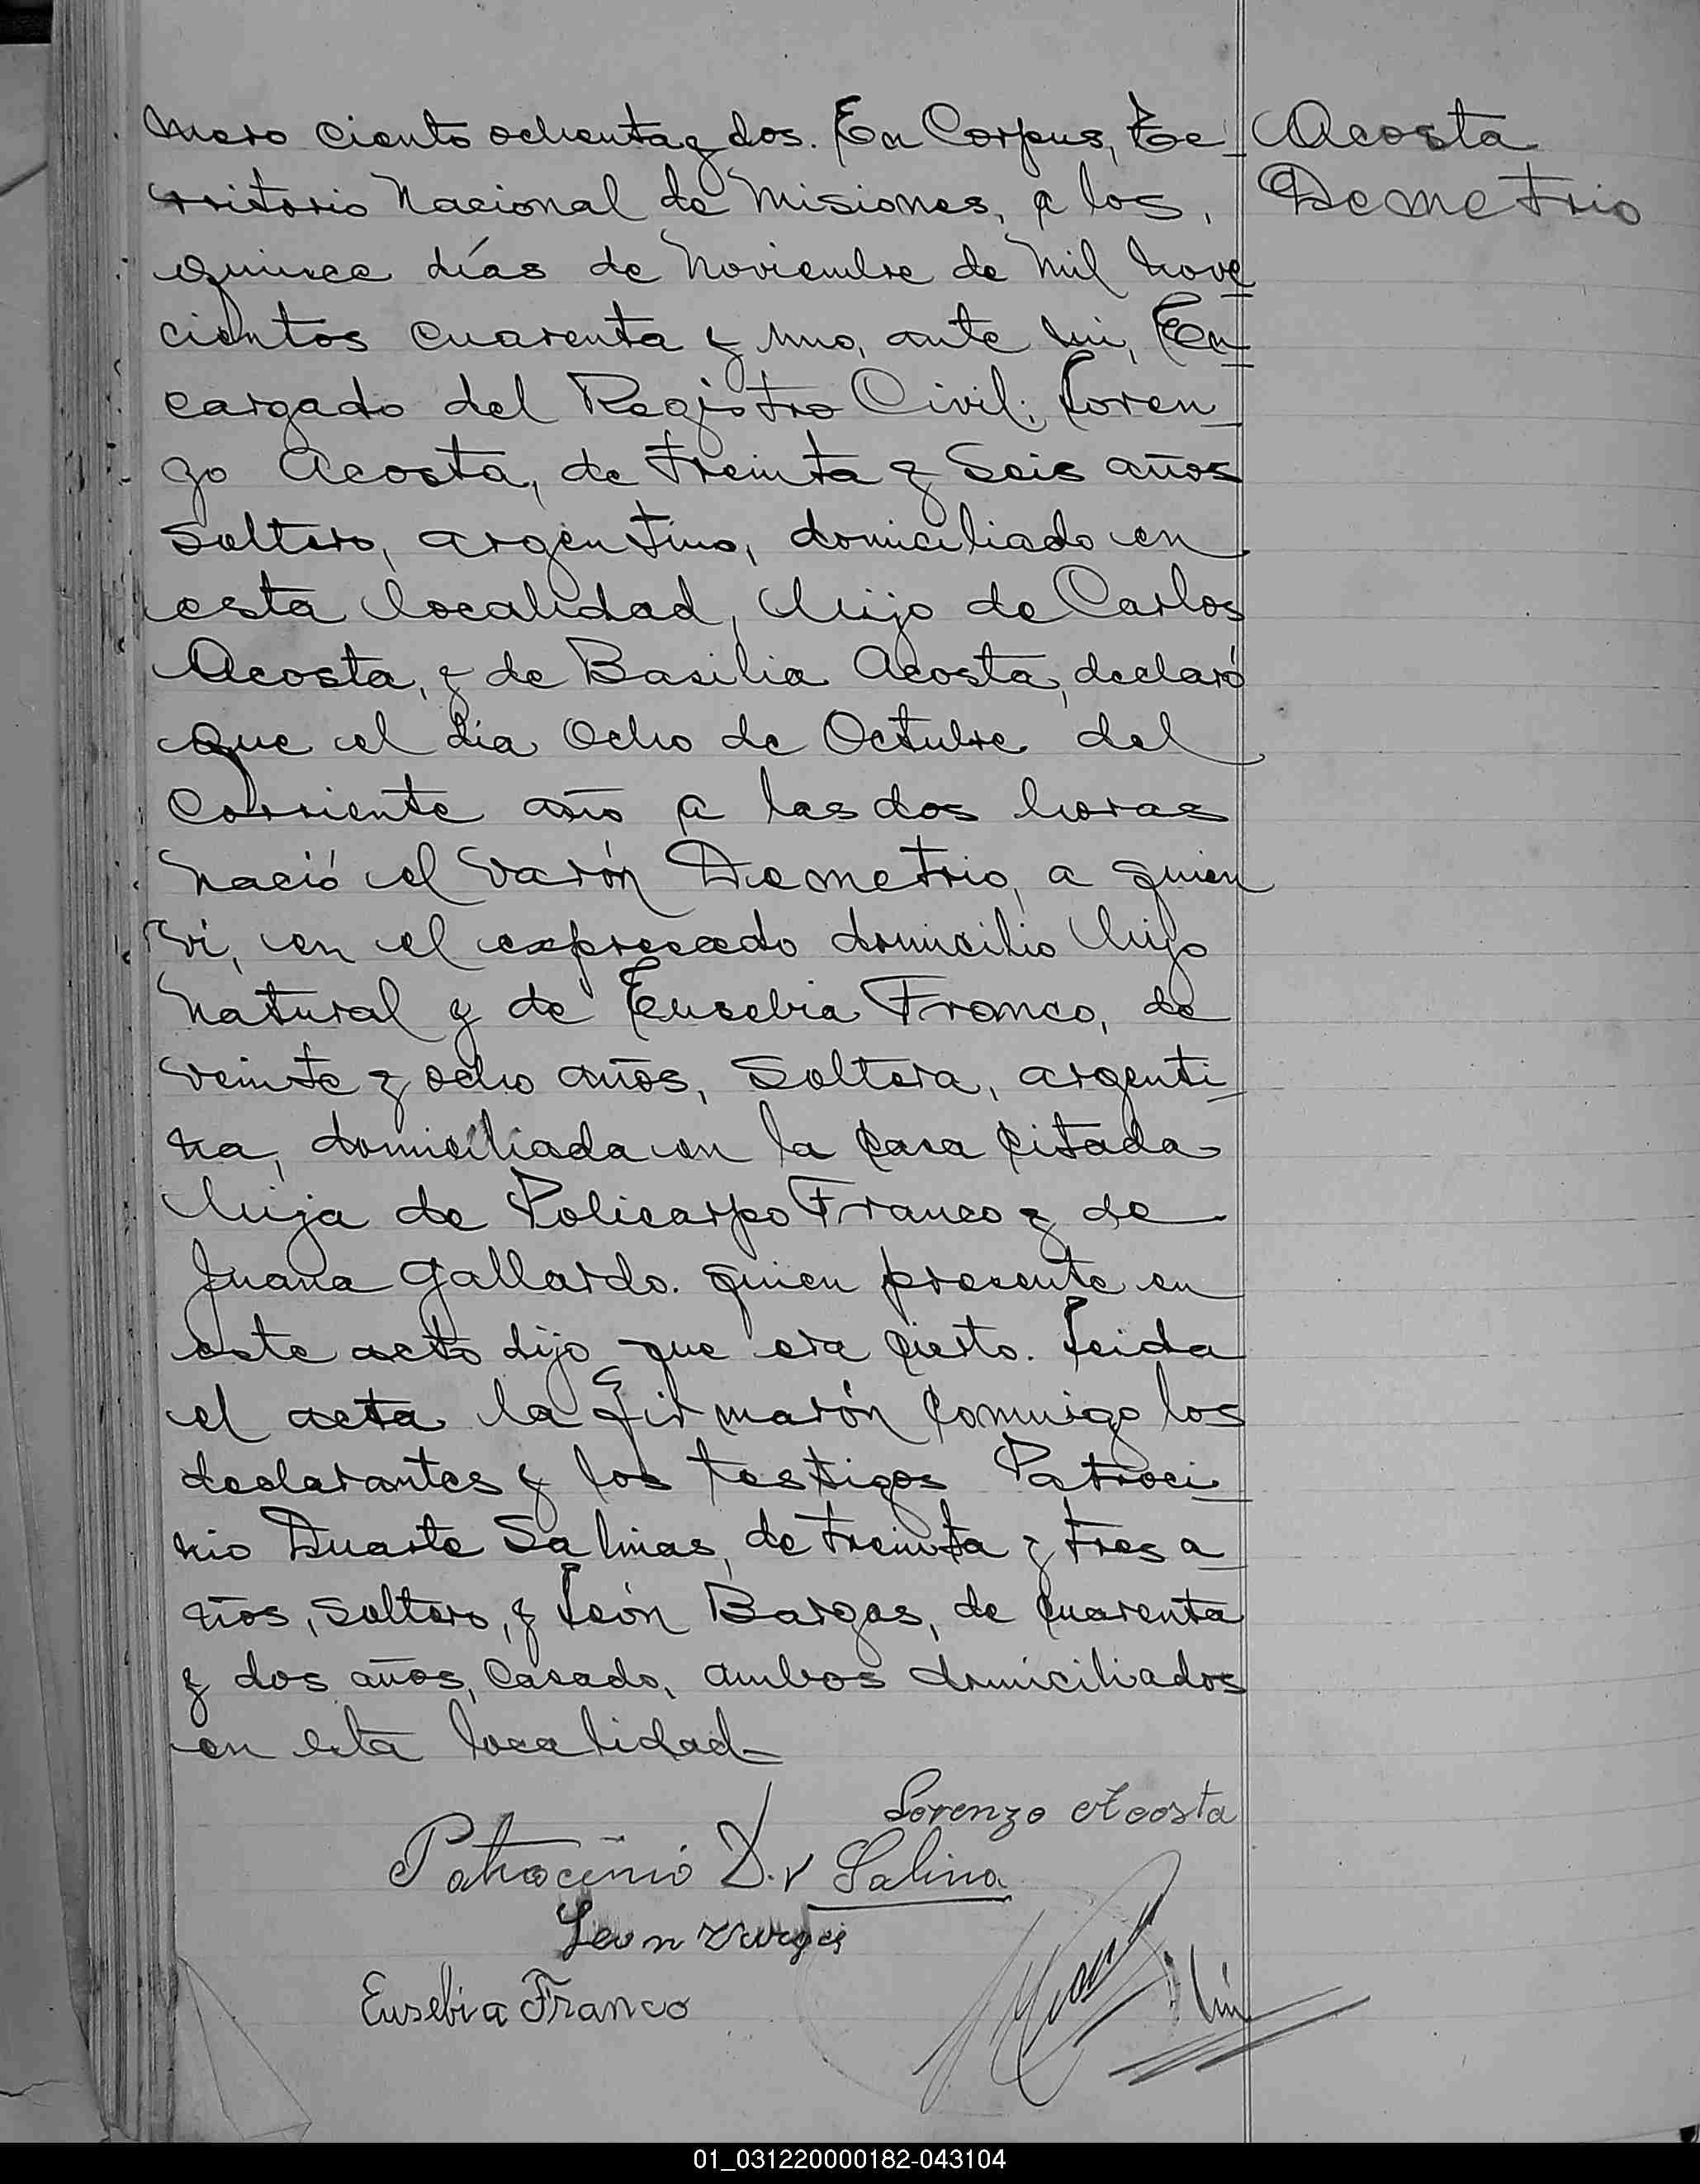 mero ciento ochenta y dos. En Corpus, Te
Acosta
rritorio Nacional de Misiones, a los,
Demetrio
quince días de Noviembre de Mil nove
cientos cuarenta y uno, ante mi, En
cargado del Registro Civil: Loren
zo Acosta, de treinta y seis años
soltero, argentino, domiciliado en
esta localidad, hijo de Carlos
Acosta, y de Basilia Acosta, declaró
que el dia ocho de Octubre del
corriente año a las dos horas
nació el varón Demetrio, a quien
vi, en el expresado domicilio hijo
natural y de Eusebia Franco, de
veinte y ocho años, soltera, argenti
na, domiciliada en la casa citada
hija de Policarpo Franco y de
Juana Gallardo. quien presente en
este acto dijo que era cierto. Leida
el acta la firmarón conmigo los
declarantes y los testigos Patroci
nio Duarte Salinas, de treinta y tres a
ños, soltero, y León Bargas, de cuarenta
y dos años, casado, ambos domiciliados
en esta localidad
Lorenzo Acosta
Patrocinio D. v Salina
Leon Vargas
Eusebia Franco
01_031220000182-043104